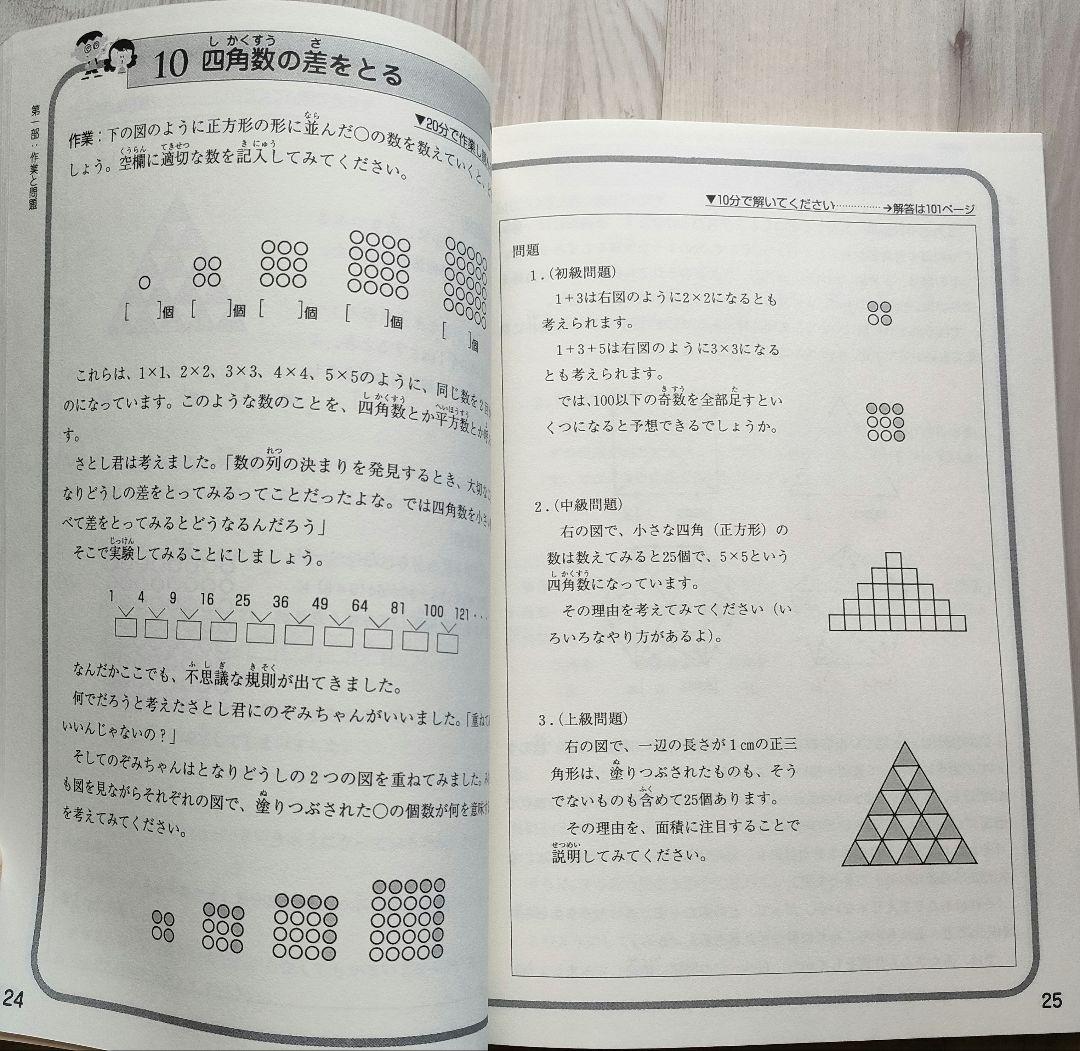 第一部：作業と問題
10 四角数の差をとる
しかくすう さ
▼20分で作業し
作業：下の図のように正方形の形に並んだ○の数を数えていくと、
なら
しょう。空欄に適切な数を記入してみてください。
くうらん てきせつ きにゅう
[ ]個 [ ]個 [ ]個 [ ]個 [ ]個
これらは、1×1、2×2、3×3、4×4、5×5のように、同じ数を2
のになっています。このような数のことを、四角数とか平方数とか
しかくすう へいほうすう
す。
さとし君は考えました。「数の列の決まりを発見するとき、大切な
れつ
なりどうしの差をとってみるってことだったよな。では四角数を小さい
べて差をとってみるとどうなるんだろう」
そこで実験してみることにしましょう。
じっけん
1 4 9 16 25 36 49 64 81 100 121‥‥
なんだかここでも、不思議な規則が出てきました。
ふしぎ きそく
何でだろうと考えたさとし君にのぞみちゃんがいいました。「重ねて
いいんじゃないの？」
そしてのぞみちゃんはとなりどうしの２つの図を重ねてみました。
も図を見ながらそれぞれの図で、塗りつぶされた○の個数が何を意味
ぬ
を考えてみてください。
24
▼10分で解いてください……………→解答は101ページ
問題
１．（初級問題）
1＋3は右図のように2×2になるとも
考えられます。
1＋3＋5は右図のように3×3になる
とも考えられます。
では、100以下の奇数を全部足すとい
きすう た
くつになると予想できるでしょうか。
２．（中級問題）
右の図で、小さな四角（正方形）の
数は数えてみると25個で、5×5という
四角数になっています。
しかくすう
その理由を考えてみてください（い
ろいろなやり方があるよ）。
３．（上級問題）
右の図で、一辺の長さが１cmの正三
角形は、塗りつぶされたものも、そう
ぬ
でないものも含めて25個あります。
ふく
その理由を、面積に注目することで
説明してみてください。
せつめい
25